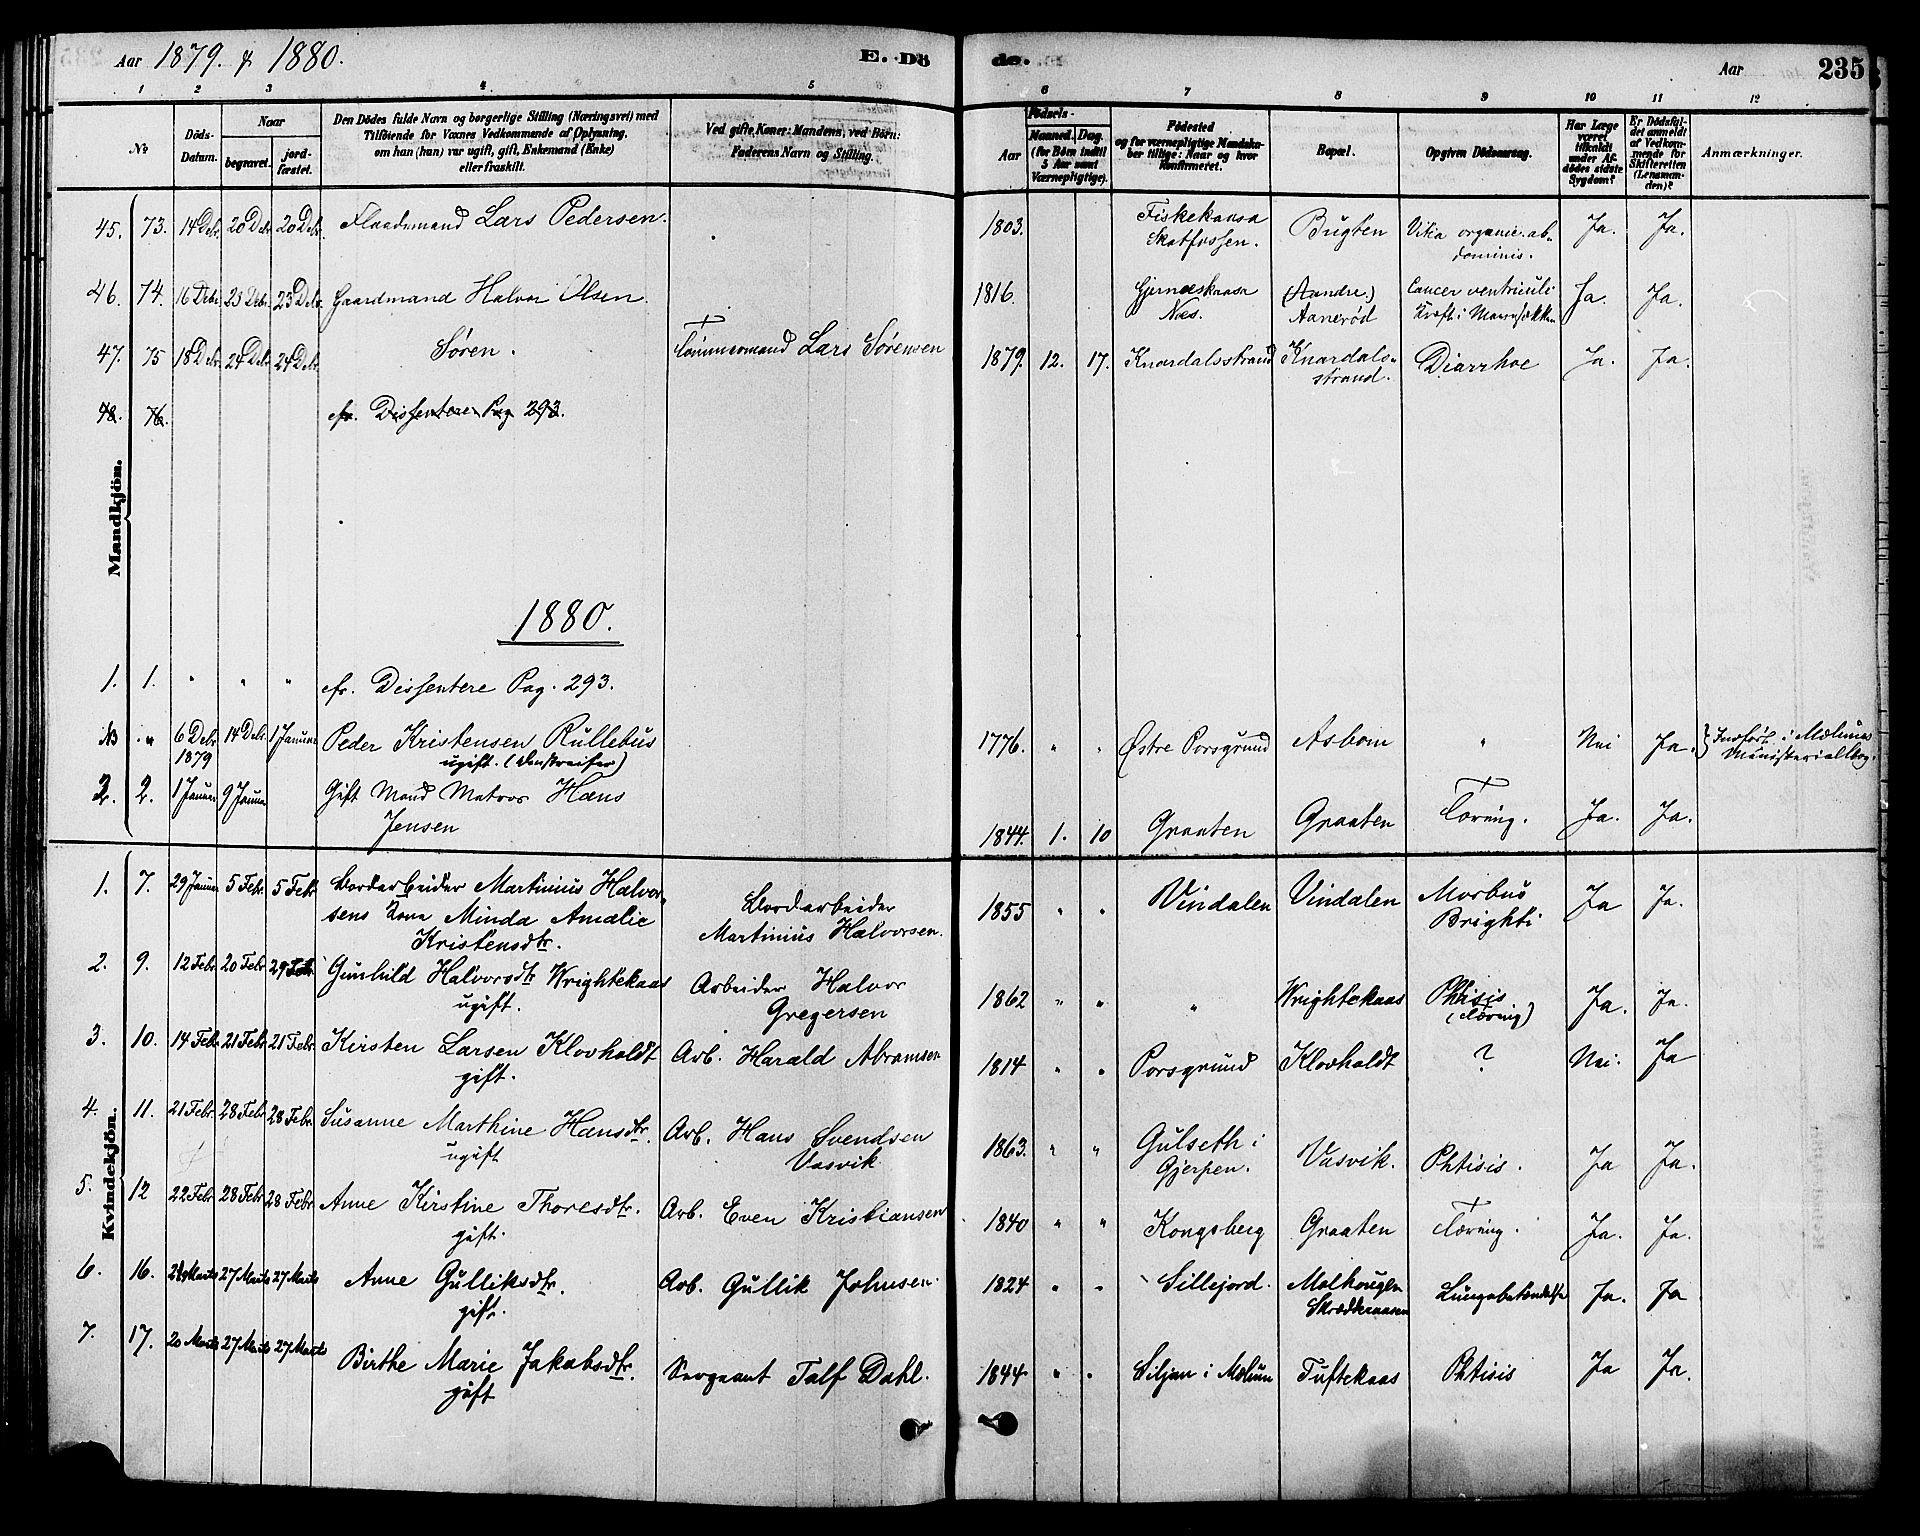 Aar 1879. & 1880.
E. Dö
de.
Aar
235
1 2 3 4 5 6 7 8 9 10 11 12
No
Döds-Datum.
Naar
begravet.
jord-fæstet.
Den Dödes fulde Navn og borgerlige Stilling (Næringsvei) med
Tilföiende for Voxnes Vedkommende af Oplysning,
om han (hun) var ugift, gift, Enkemand (Enke)
eller fraskilt.
Ved gifte Koner: Mandens, ved Börn:
Faderens Navn og Stilling.
Födsels-
Aar
Maaned. Dag.
(for Börn indtil
5 Aar samt
Værnepligtige).
Födested
og for værnepligtige Mandska-
ber tillige: Naar og hvor
Konfirmeret.
Bopæl.
Opgiven Dödsaarsag.
Har Læge
været
tilkaldt
under Af-
dödes sidste
Sygdom?
Er Dödsfal-
det anmeldt
af Vedkom-
mende for
Skifteretten
(Lensman-
den)?
Anmærkninger.
Mandkjön.
45. 73. 14 Debr. 20 Debr. 20 Debr. Lars Pedersen. 1803. Fiskekaasa Skotfossen. Bugten organic. abdominis. Ja. Ja.
46. 74. 16 Debr. 23 Debr. 23 Debr. Gaardmand Halvor Olsen. 1816. Næs. (Aandre.) Aanerød Cancer ventriculi Kræft i Ja. Ja.
47. 75 18 Debr. 24 Debr. 24 Debr. Søren. Tømmermand Lars Sørensen 1879. 12. 17. Knardalsstrand Knardals-strand. Diarrhoe Ja. Ja.
48. 76. cfr. Dissentere Pag 293.
1880.
1. 1. " " " cfr. Dissentere Pag. 293.
NB " 6 Debr. 1879 14 Debr. 1 Januar Peder Kristensen Rullebus ugift. 1776. " " Østre Porsgrund Asbom " Nei Ja. Indført i Mælums Ministerialbog.
2. 2. 1 Januar 9 Januar Gift Mand Matros Hans Jensen 1844. 1. 10 Graaten Graaten Tæring. Ja. Ja.
Kvindekjön.
1. 7. 29 Januar 5 Febr. 5 Febr. Bordarbeider Martinius Halvorsens Kone Minda Amalie Kristensdtr. Bordarbeider Martinius Halvorsen. 1855 " " Vindalen Vindalen Morbus Brighti Ja Ja.
2. 9. 12 Febr. 20 Febr. 29 Febr. Gunhild Halvorsdtr Wrightekaas ugift. Arbeider Halvor Gregersen 1862 " " " Wrightekaas Phtisis (Tæring) Ja. Ja.
3. 10. 14 Febr. 21 Febr. 21 Febr. Kirsten Larsen Klovholdt gift. Arb. Harald Abramsen 1814 " " Porsgrund Klovholdt ? Nei. Ja
4. 11. 21 Febr. 28 Febr. 28 Febr. Susanne Marthine Hansdtr. ugift Arb. Hans Svendsen Vasvik 1863. " " Gulseth i Gjerpen. Vasvik. Phtisis. Ja Ja.
5. 12 22 Febr. 28 Febr. 28 Febr. Anne Kirstine Thoresdtr. gift. Arb. Even Kristiansen 1840 " " Kongsberg Graaten Tæring. Ja. Ja.
6. 16. Marts 27 Marts 27 Marts Anne Gulliksdtr. gift. Arb. Gullik Johnsen. 1824 " " Sillejord. Molhougen Lungebetændelse Ja. Ja
7. 17. 20 Marts 27 Marts 27 Marts Birthe Marie Jakobsdtr. gift Sergeant Talf Dahl. 1844 " " Siljan i Mælum Tuftekaas Phtisis Ja Ja.